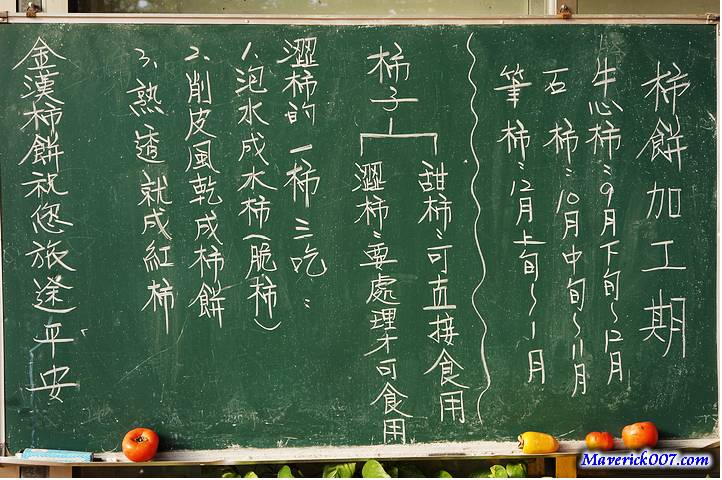 柿餅加工期
牛心柿:9月下旬~12月
石柿:10月中旬~11月
筆柿:12月上旬~1月
柿子
甜柿:可直接食用
澀柿:要處理才可食用
澀柿的一柿三吃:
1、泡水成水柿(脆柿)
2、削皮風乾成柿餅
3、熟透就成紅柿
金漢柿餅祝您旅途平安
Maverick007.com